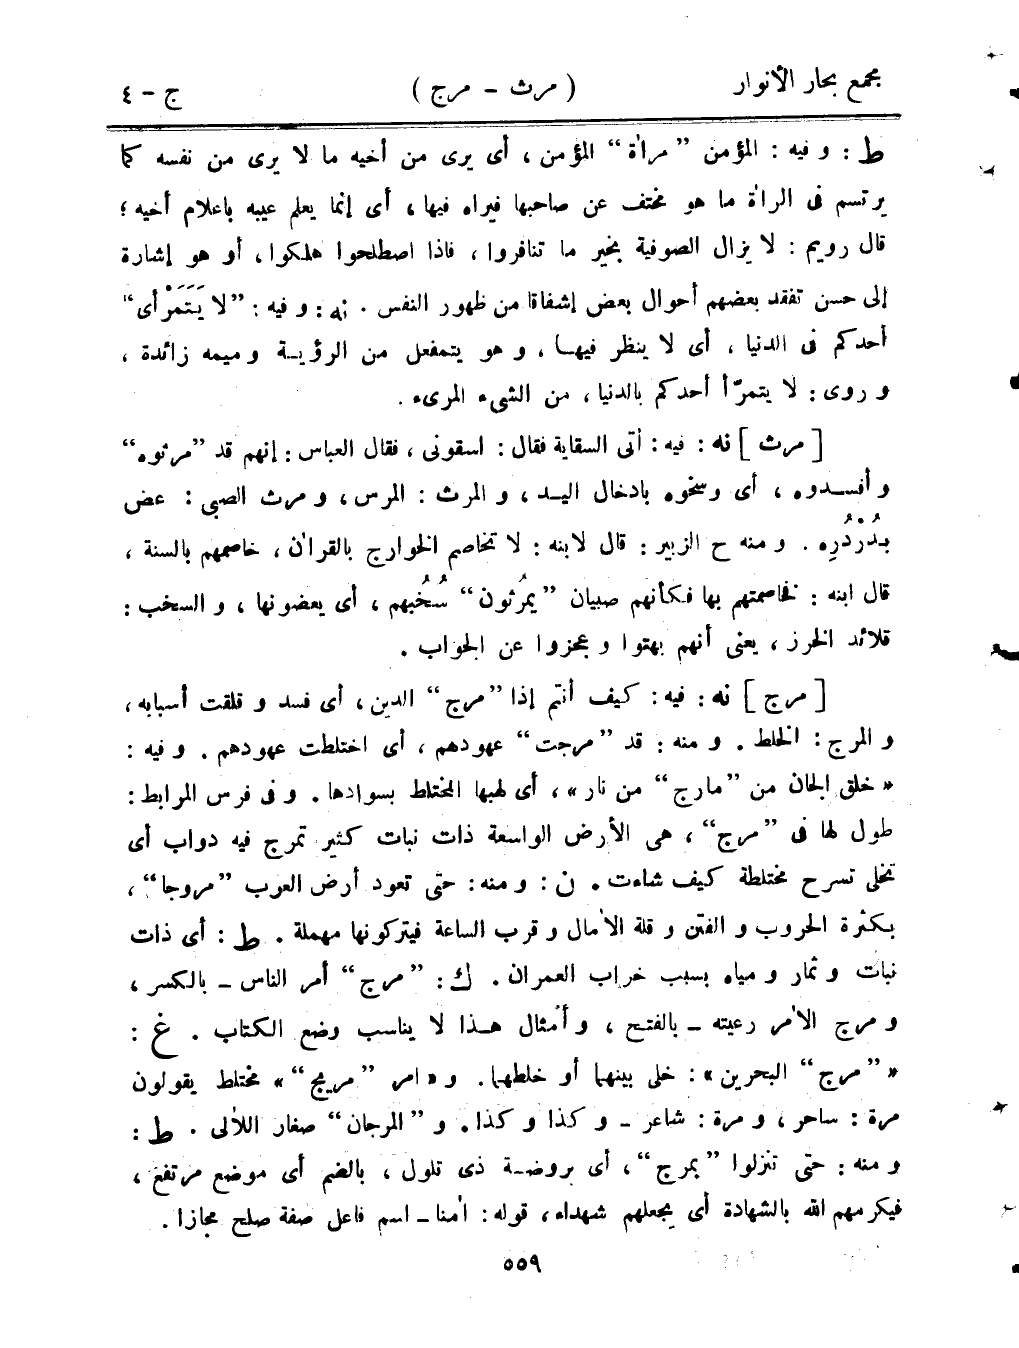 مجمع بحار الأنوار ( مرث - مرج ) ج - ٤
ط : و فيه : المؤمن ”مراٰة“ المؤمن ، أى يرى من أخيه ما لا يرى من نفسه كما
يرتسم فى الراٰة ما هو مختف عن صاحبها فيراه فيها ، أى إنما يعلم عيبه باعلام أخيه ؛
قال رويم : لا يزال الصوفية بخير ما تنافروا ، فاذا اصطلحوا هلكوا ، أو هو إشارة
إلى حسن تفقد بعضهم أحوال بعض إشفاقا من ظهور النفس . نه : و فيه : ”لا يَتَمَرْأى“
أحدكم فى الدنيا ، أى لا ينظر فيهـا ، و هو يتمفعل من الرؤيـة و ميمه زائدة ،
و روى : لا يتمرّأ أحدكم بالدنيا ، من الشىء المرىء .
[ مرث ] نه : فيه : أتى السقاية فقال : اسقونى ، فقال العباس : إنهم قد ”مرثوه“
و أفسـدوه ، أى وسخوه بادخال اليـد ، و المرث : المرس ، و مرث الصبى : عض
بدُرْدُرِه . و منه ح الزبير : قال لابنه : لا تخاصم الخوارج بالقراٰن ، خاصمهم بالسنة ،
قال ابنه : فخاصمتهم بها فكأنهم صبيان ”يمرُثون“ سُخُبهم ، أى يعضونها ، و السخب :
قلائد الخرز ، يعنى أنهم بهتوا و عجزوا عن الجواب .
[ مرج ] نه : فيه : كيف أنتم إذا ”مرج“ الدين ، أى فسد و قلقت أسبابه ،
و المرج : الخلط . و منه : قد ”مرجت“ عهودهم ، أى اختلطت عهودهم . و فيه :
« خلق الجان من ”مارج“ من نار » ، أى لهبها المختلط بسوادها . و فى فرس المرابط :
طول لها فى ”مرج“ ، هى الأرض الواسعة ذات نبات كثير تمرج فيه دواب أى
تخلى تسرح مختلطة كيف شاءت . ن : و منه : حتى تعود أرض العرب ”مروجا“ ،
بكثرة الحروب و الفتن و قلة الاٰمال و قرب الساعة فيتركونها مهملة . ط : أى ذات
نبات و ثمار و مياه بسبب خراب العمران . ك : ”مرج“ أمر الناس ـ بالكسر ،
و مرج الاٰمر رعيته ـ بالفتـح ، و أمثال هـذا لا يناسب وضع الكتاب . غ :
« ”مرج“ البحرين » : خلى بينهما أو خلطهما . و « امر ”مريج“ » مختلط يقولون
مرة : ساحر ، و مرة : شاعر ـ و كذا و كذا . و ”المرجان“ صغار اللاٰلى . ط :
و منه : حتى تنزلوا ”بمرج“ ، أى بروضـة ذى تلول ، بالضم أى موضع مرتفع ،
فيكرمهم الله بالشهادة أى يجعلهم شهداء ، قوله : اٰمنا ـ اسم فاعل صفة صلح مجازا .
٥٥٩